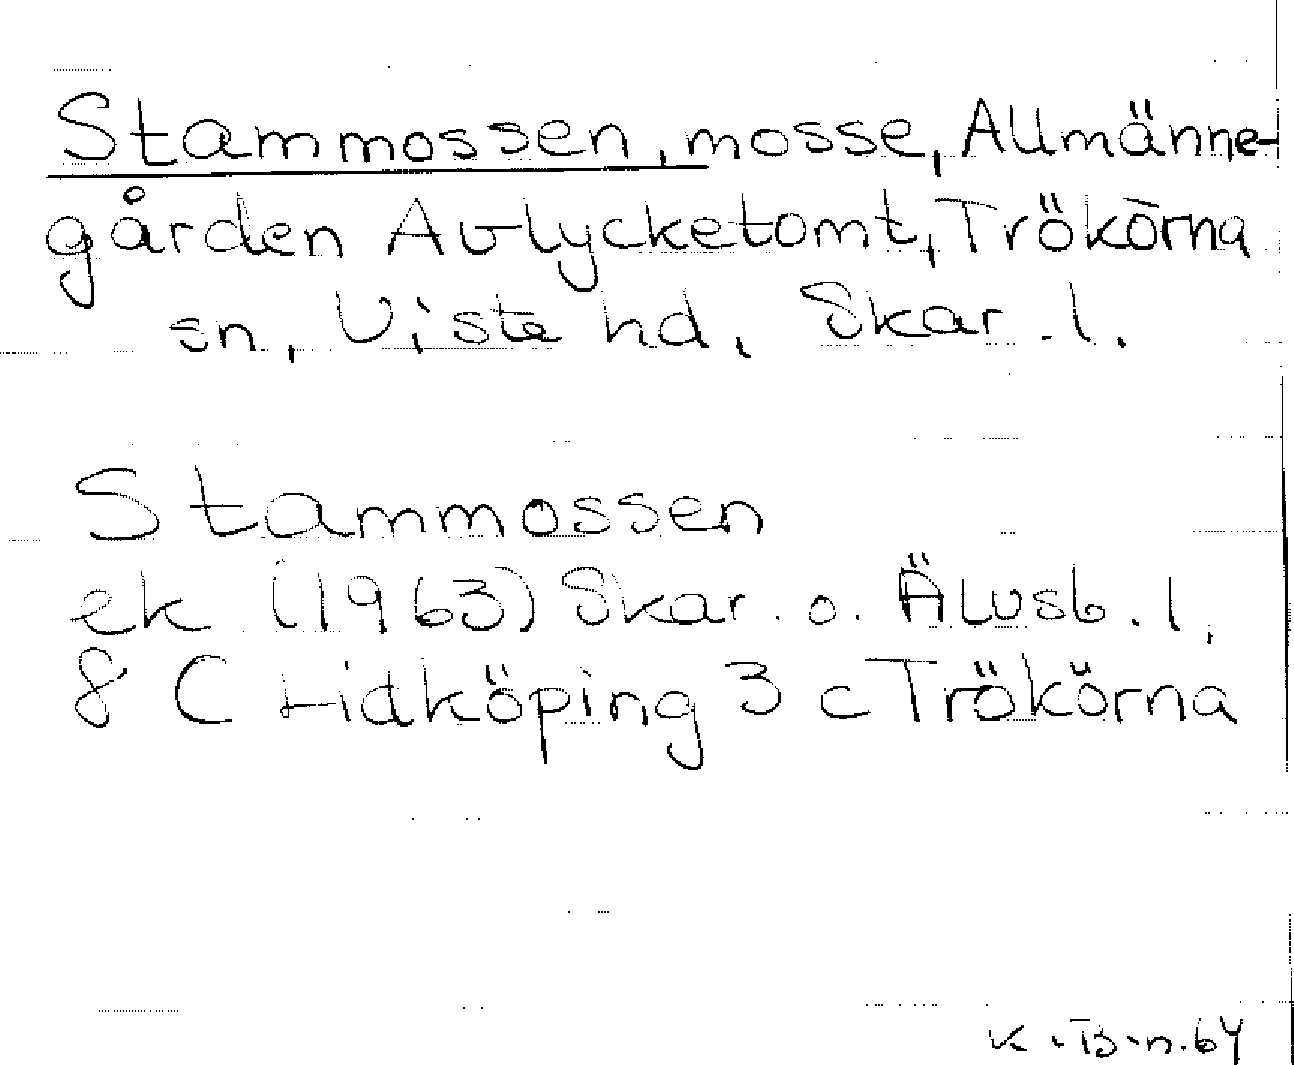 Stammossen, mosse, Allmänne-
gården Avlycketomt, Trökörna
sn, Viste hd, Skar. l.
Stammossen
ek (1963) Skar. o. Älvsb. l,
8 C Lidköping 3 c Trökörna
K. B-n. 64